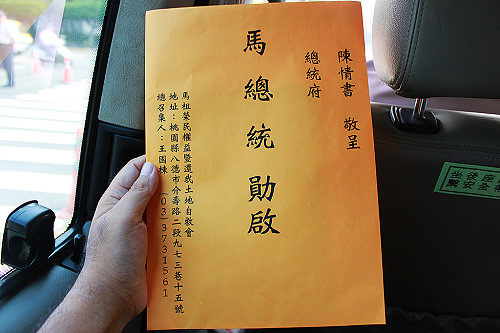 陳情書 敬呈
總統府
馬總統 勛啟
馬祖榮民權益暨還我土地自救會
地址：桃園縣八德市介壽路二段九七三巷十五號
總召集人：王國棟 (03)3731561
坐後座
繫安全